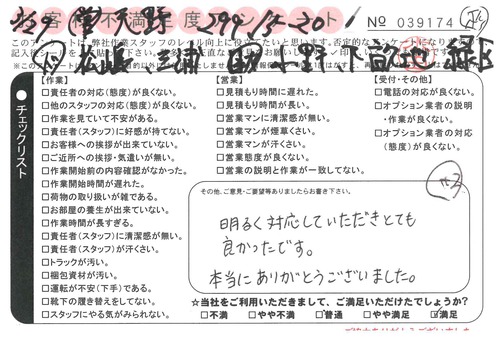 お客様不満足度アンケート
No 039174
299/15-20
チェックリスト
【作業】
□責任者の対応(態度)が良くない。
□他のスタッフの対応(態度)が良くない。
□作業を見ていて不安がある。
□責任者(スタッフ)に好感が持てない。
□お客様への挨拶が出来ていない。
□ご近所への挨拶・気遣いが無い。
□作業開始前の内容確認がなかった。
□作業開始時間が遅れた。
□荷物の取り扱いが雑である。
□お部屋の養生が出来ていない。
□作業時間が長すぎる。
□責任者(スタッフ)に清潔感が無い。
□責任者(スタッフ)が汗くさい。
□トラックが汚い。
□梱包資材が汚い。
□運転が不安(下手)である。
□靴下の履き替えをしてない。
□スタッフにやる気がみられない。
【営業】
□見積もり時間に遅れた。
□見積もり時間が長い。
□営業マンに清潔感が無い。
□営業マンが煙草くさい。
□営業マンが汗くさい。
□営業態度が良くない。
□営業の説明と作業が一致してない。
【受付・その他】
□電話の対応が良くない。
□オプション業者の説明
・作業が良くない。
□オプション業者の対応
(態度)が良くない。
その他、ご意見・ご要望等ありましたらお書き下さい。
明るく対応していただきとても
良かったです。
本当にありがとうございました。
☆当社をご利用いただきまして、ご満足いただけたでしょうか?
□不満 □やや不満 □普通 □やや満足 ☑満足